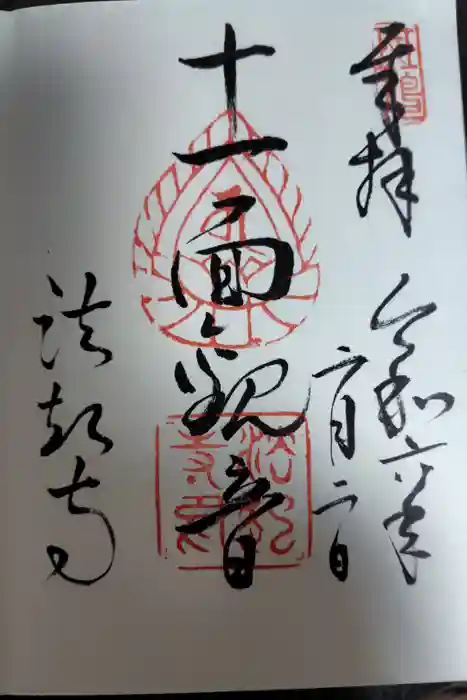 奉拝
令和六年
六月二日
十一面観音
法起寺
斑鳩